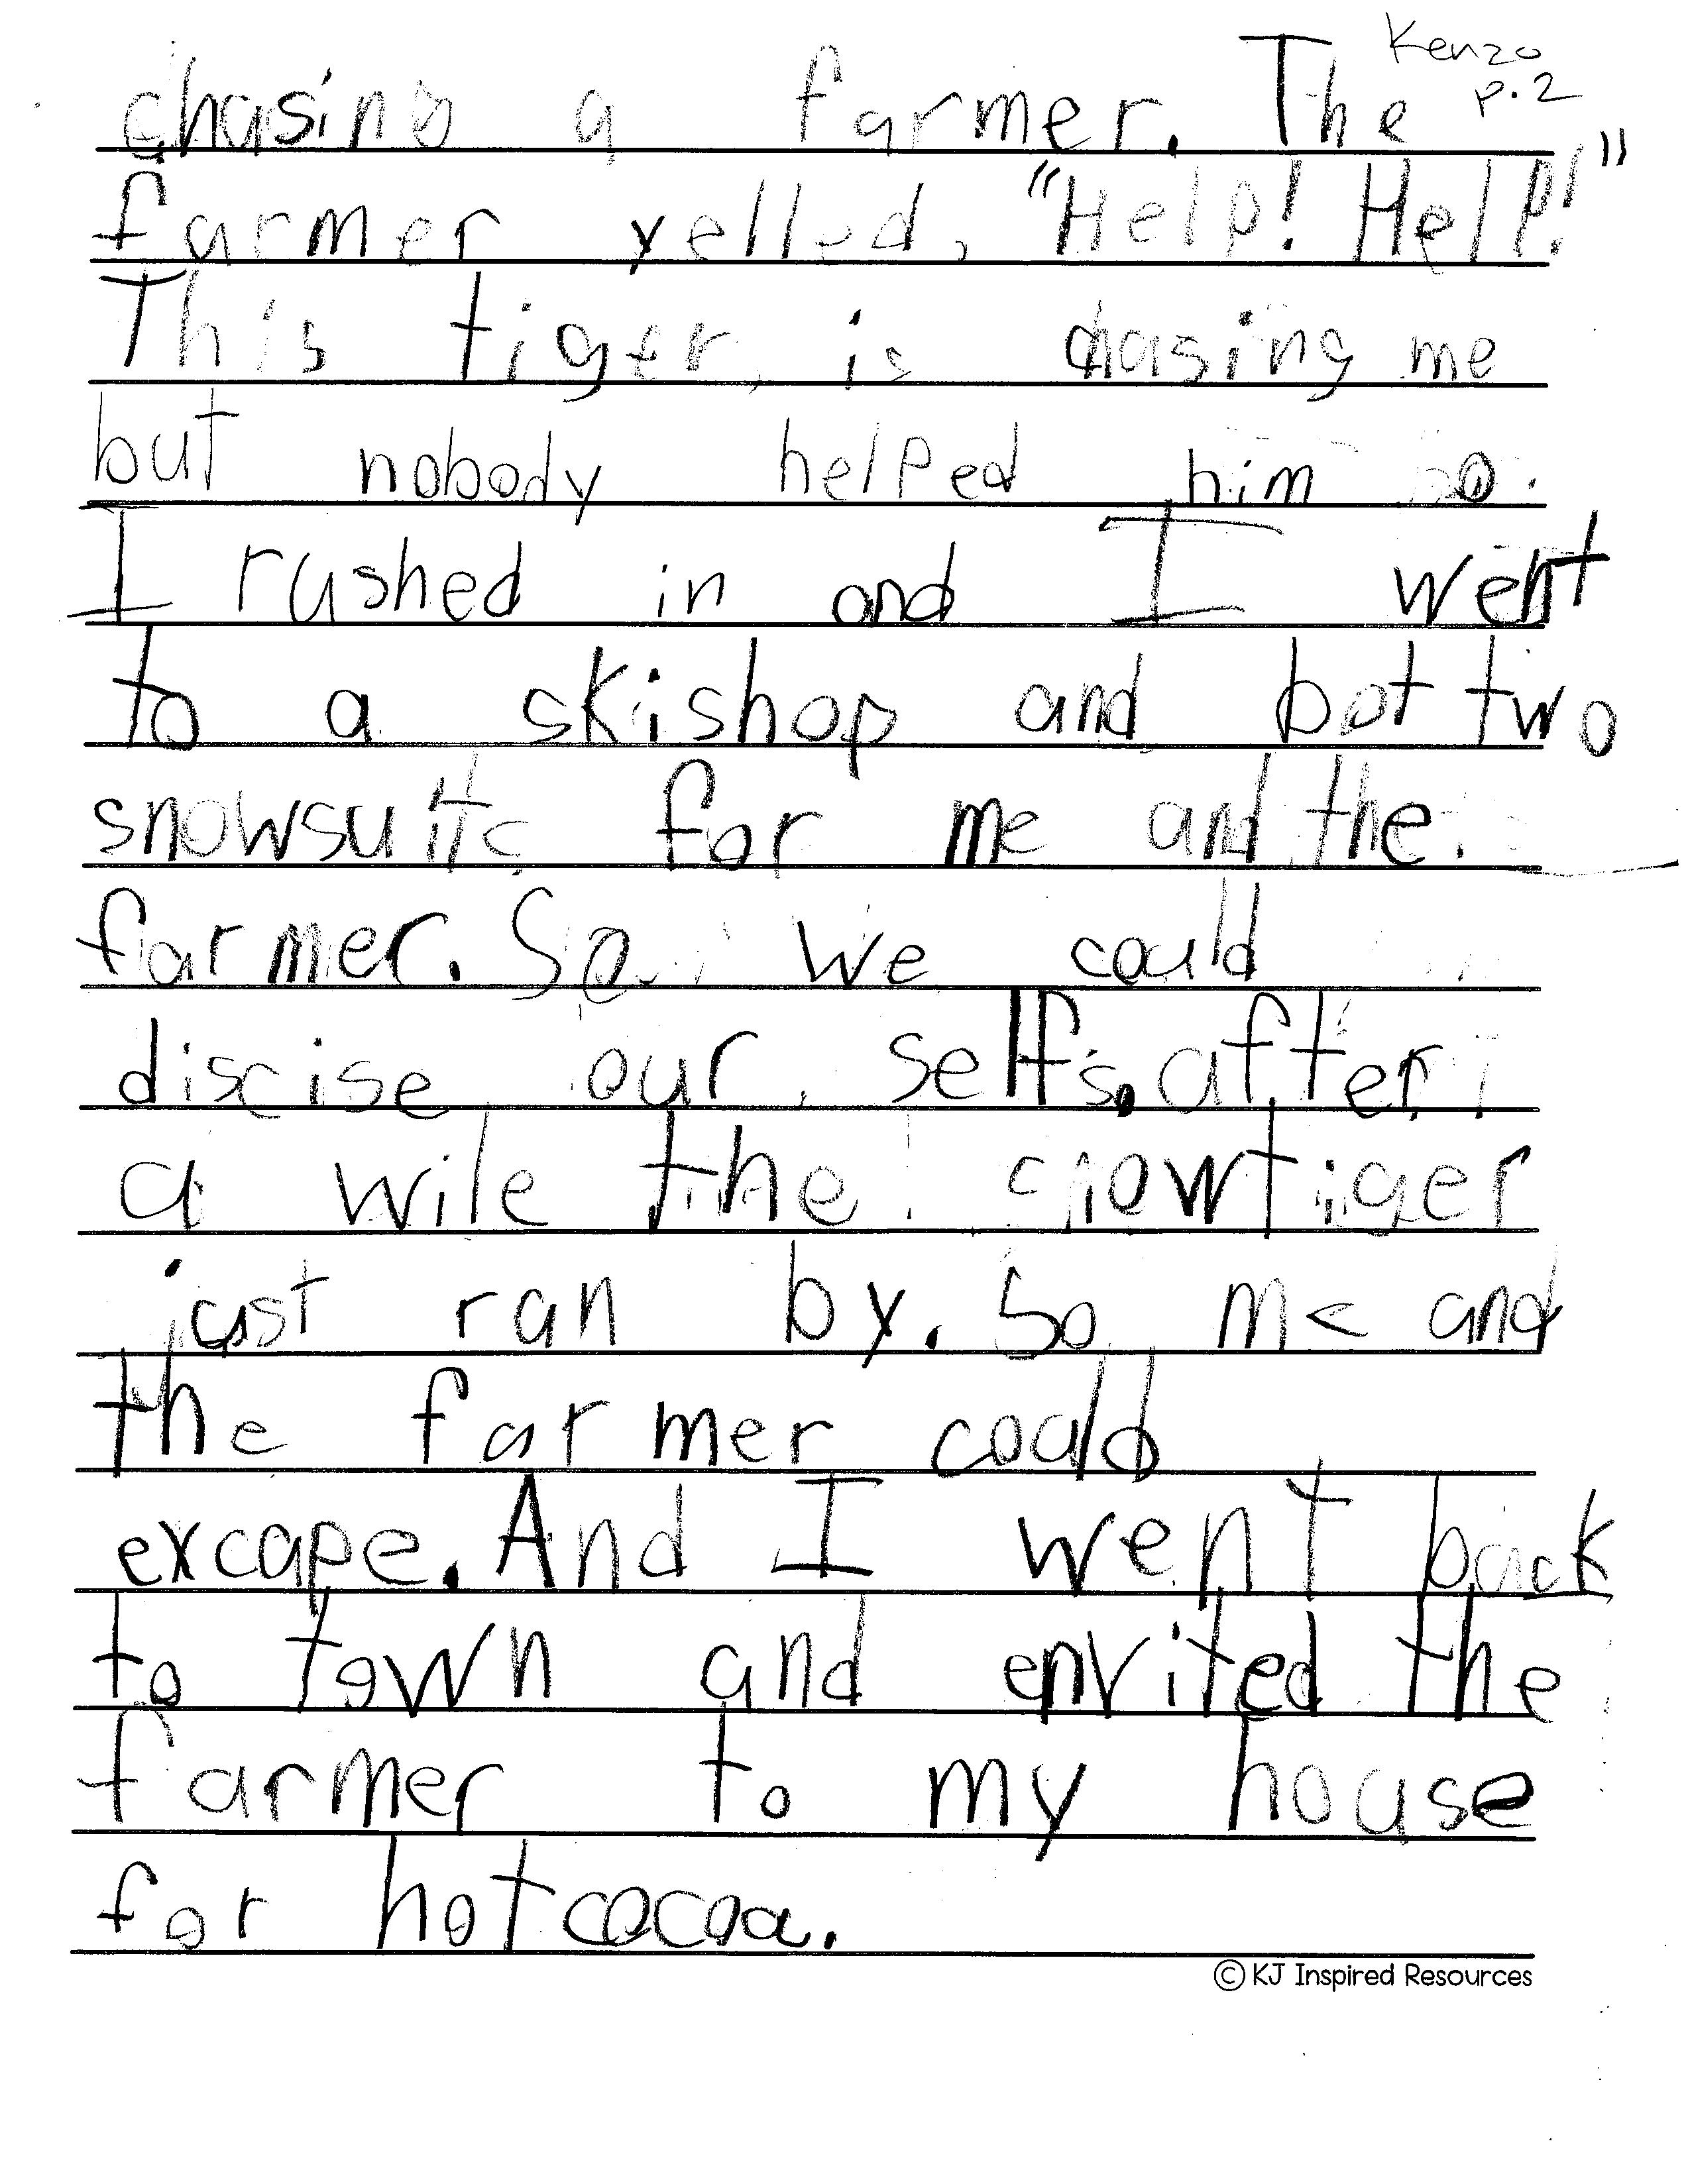 Kenzo
p.2
chasing a farmer. The
farmer yelled, "Help! Help!"
This tiger, is chasing me
but nobody helped him so
I rushed in and I went
to a skishop and bot two
snowsuits for me and the
farmer. So we could
discise our selfs. after
a wile the snowtiger
just ran by. So me and
the farmer could
excape. And I went back
to town and envited the
farmer to my house
for hotcocoa.
© KJ Inspired Resources